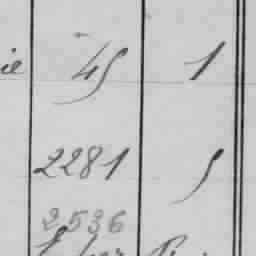 ie 45 1
2281 5
2536